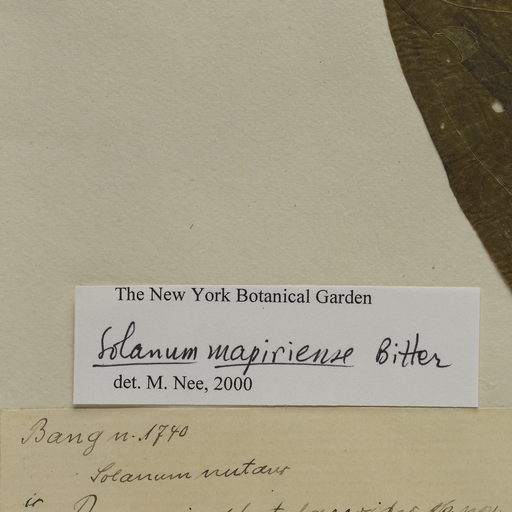 The New York Botanical Garden
Solanum mapiriense Bitter
det. M. Nee, 2000
Bang n. 1740
Solanum nutans